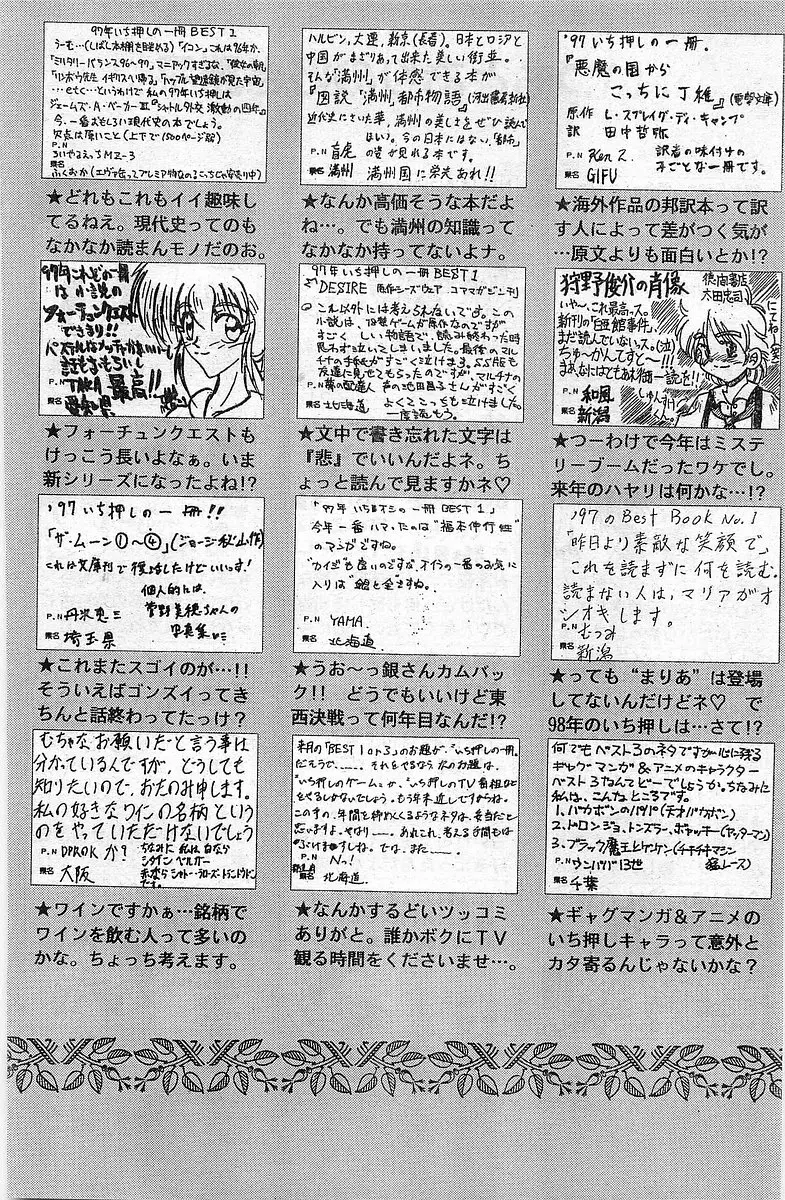 '97年いち押しの一冊 BEST1
うーむ…(しばし本棚を眺める)「イコン」これは96年か、
…etc…というわけで 私の97年いち押しは
ジェームズ・A・ベーカーⅢ『シャトル外交 激動の四年』
今、一番おもしろい現代史の本でしょう。
P.N
県名
★どれもこれもイイ趣味し
てるねえ。現代史ってのも
なかなか読まんモノだのお。
ハルビン,大連,新京(長春)。日本とロシアと
中国がまざりあって出来た美しい街並。
そんな「満州」が体感できる本が
『図説「満州」都市物語』(河出書房新社)
近代史にさいた華、満州の美しさをぜひ読んで
ほしい。今の日本にはない、「都市」
の姿が見れる本です。
P.N 盲虎
県名 満州 満州国に栄えあれ!!
★なんか高価そうな本だよ
ね…。でも満州の知識って
なかなか持ってないよナ。
'97 いち押しの一冊.
『悪魔の国から
こっちに丁稚』(電撃文庫)
原作 L・スプレイグ・ディ・キャンプ
訳 田中哲弥
P.N Ken Z. 訳者の味付けの
県名 GIFU みごとな一冊です。
★海外作品の邦訳本って訳
す人によって差がつく気が
…原文よりも面白いとか!?
97年これぞの一冊
は小説の
フォーチュンクエスト
できまり!!
P.N TAKA 最高!!
県名 愛知県
★フォーチュンクエストも
けっこう長いよなぁ。いま
新シリーズになったよね!?
97年いち押しの一冊 BEST1
DESIRE 原作シーズウェア コアマガジン刊
これ以外には考えられないです。この
小説は、18禁ゲームが原作なのですが
すごく しい物語で、読み終わった時
思わず泣いてしまいました。最後のマル
チナの手紙がすごく泣けます。SS版も
友達に見せてもらったのですが、マルチナの
P.N 夢の配達人 声の池田昌子さんがすごく
県名 北海道 よくてこっちも泣けました。
一度読もう。
★文中で書き忘れた文字は
『悲』でいいんだよネ。ち
ょっと読んで見ますかネ♡
狩野俊介の肖像 徳間書店
太田忠司
いや〜、これ最高っス。
新刊の「白亜館事件」、
まだ読んでいないス。(泣)
ちゅーかんてすと〜!!!
P.N 和風
県名 新潟
★つーわけで今年はミステ
リーブームだったワケでし。
来年のハヤリは何かな…!?
'97 いち押しの一冊!!
「ザ・ムーン①〜④」(ジョージ秋山作)
これは文庫刊で復活したけどいいっす!
個人的には、
P.N 丹沢恵三 菅野美穂ちゃんの
県名 埼玉県 写真集…
★これまたスゴイのが…!!
そういえばゴンズイってき
ちんと話終わってたっけ?
「97年 いちオシの一冊 BEST1」
今年一番ハマったのは"福本伸行"
のマンガですね。
"カイジ"も良いのですが、オイラの一番のお気に
入りは"銀と金"ですね。
P.N YAMA
県名 北海道
★うお〜っ銀さんカムバッ
ク!! どうでもいいけど東
西決戦って何年目なんだ!?
'97のBest Book No.1
「昨日より素敵な笑顔で」
これを読まずに何を読む.
読まない人は、マリアがオ
シオキします。
P.N むつみ
県名 新潟
★っても“まりあ”は登場
してないんだけどネ♡ で
98年のいち押しは…さて!?
むちゃなお願いだと言う事は
分かっているんですが、どうしても
知りたいので、おたのみ申します。
私の好きなワインの名柄という
のをやっていただけないでしょう
か?
P.N DPROK ちなみに 私は 白なら
県名 大阪
★ワインですかぁ…銘柄で
ワインを飲む人って多いの
かな。ちょっち考えます。
来月の「BEST 1 or 3」のお題が、"いち押しの一冊"
だそうで……、それをできるなら 次のお題は、
"いち押しのゲーム"とか、"いち押しのTV番組"など
P.N Nっ!
県名 北海道
★なんかするどいツッコミ
ありがと。誰かボクにTV
観る時間をくださいませ…。
何でもベスト3のネタですが、心に残る
ギャグマンガ&アニメのキャラクター
ベスト3なんてどーでしょうか。ちなみに
私は、こんなところです。
1. バカボンのパパ (天才バカボン)
2. ドロンジョ・トンズラー・ボヤッキー(ヤッターマン)
3. ブラック魔王とケンケン(チキチキマシン
猛レース)
P.N ウンババ13世
県名 千葉
★ギャグマンガ&アニメの
いち押しキャラって意外と
カタ寄るんじゃないかな?